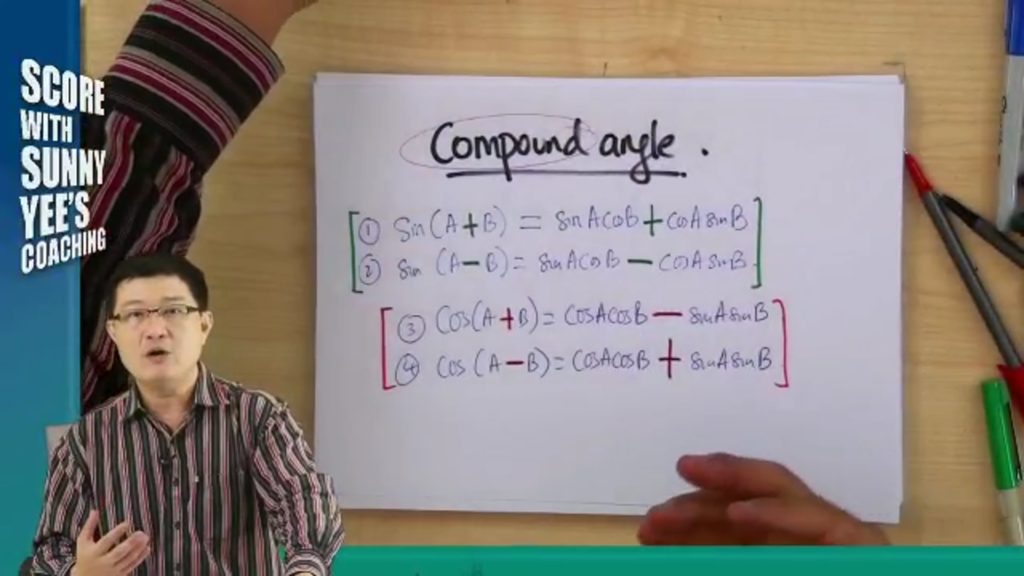 SCORE
WITH
SUNNY
YEE'S
COACHING
Compound angle .
① Sin (A + B) = sinAcosB + cosAsinB
② sin (A − B) = sinAcosB − cosAsinB
③ Cos(A + B) = cosAcosB − sinAsinB
④ cos (A − B) = cosAcosB + sinAsinB